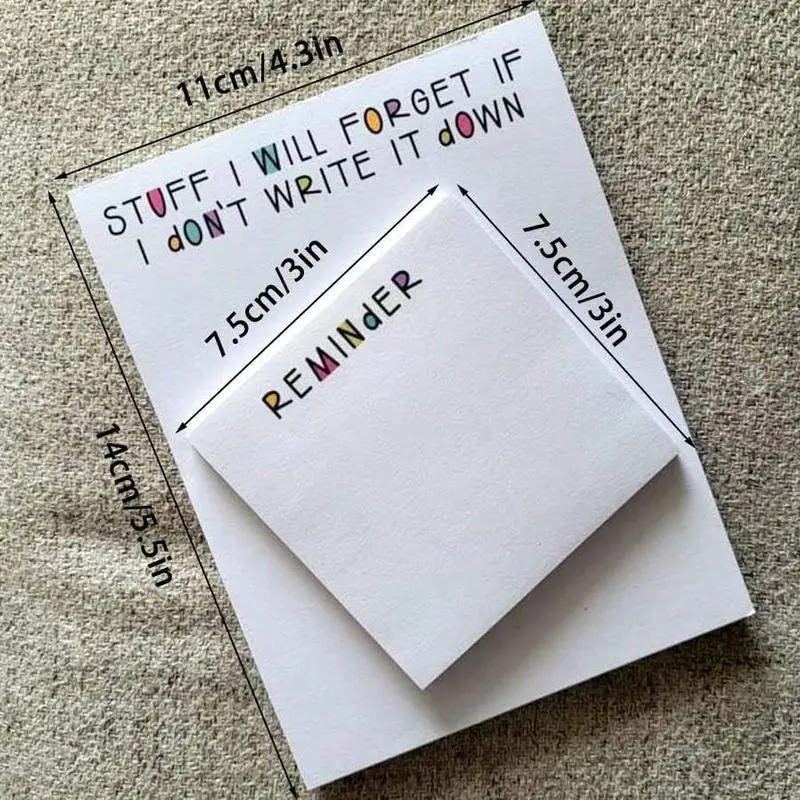 11cm/4.3in
STUFF I WILL FORGET IF
I dON'T WRITE IT dOWN
7.5cm/3in
7.5cm/3in
REMINdER
14cm/5.5in